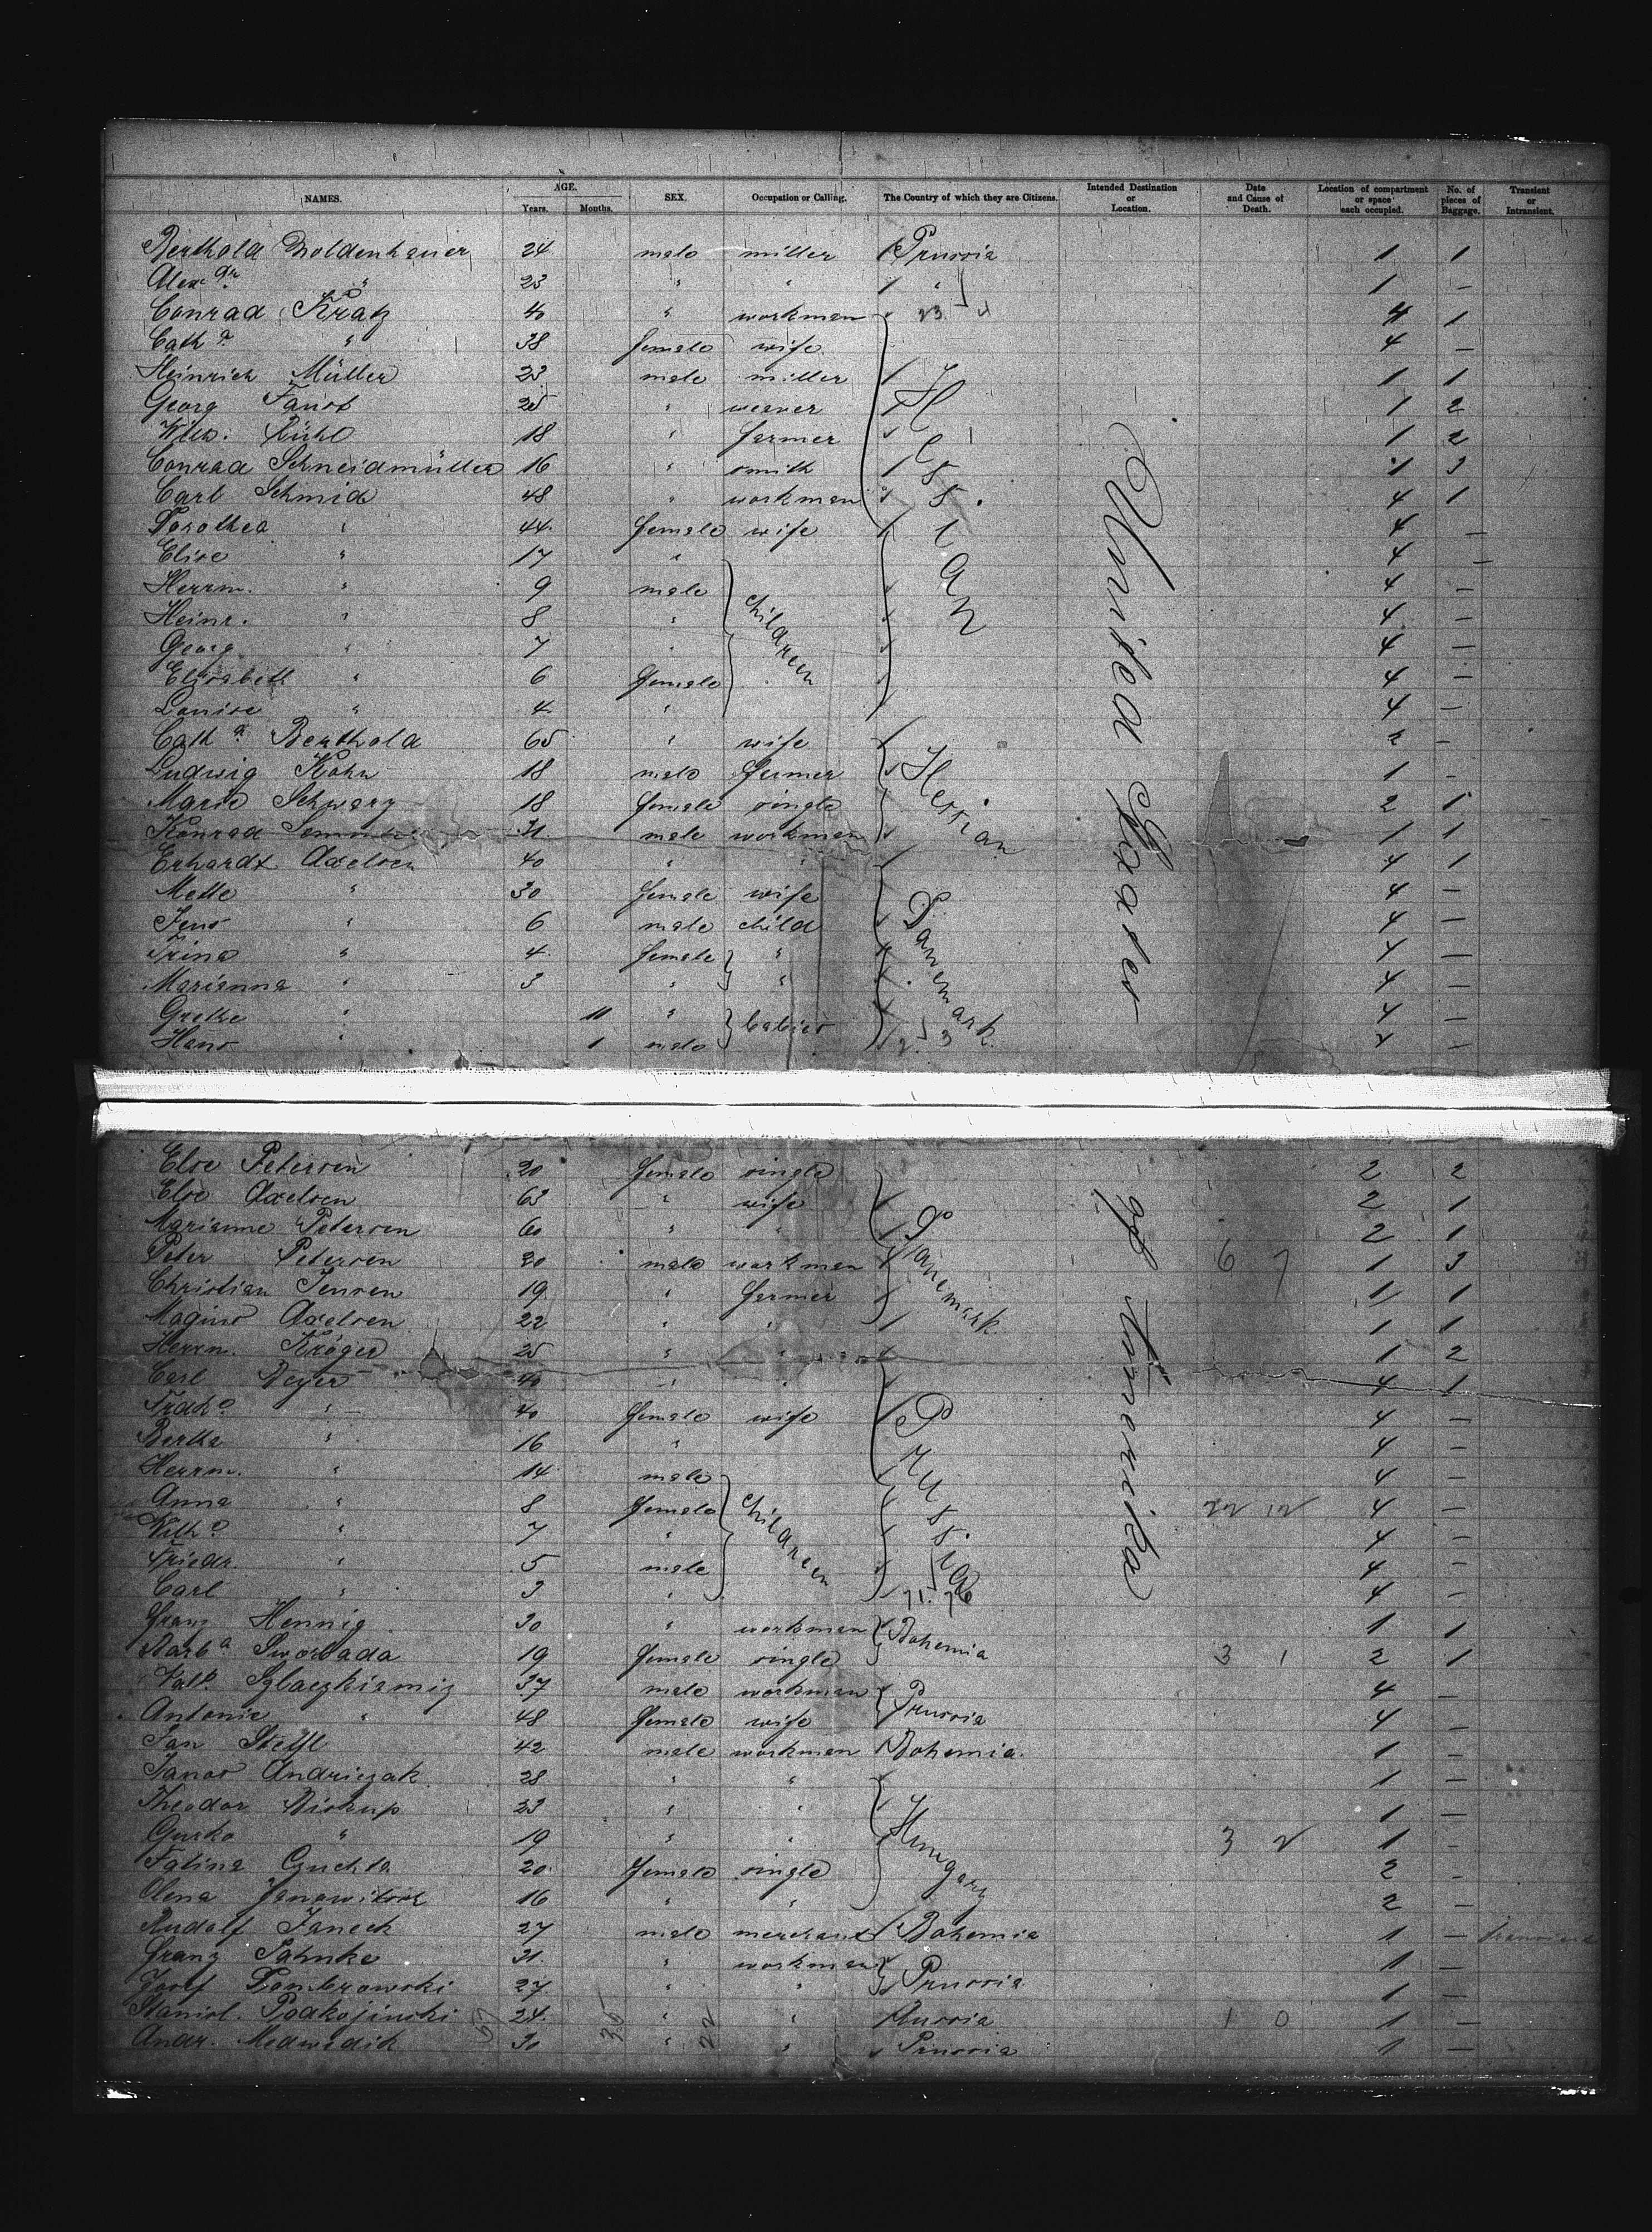 NAMES. AGE. Years. Months. SEX. Occupation or Calling. The Country of which they are Citizens. Intended Destination or Location. Date and Cause of Death. Location of compartment or space each occupied. No. of pieces of Baggage. Transient or Intransient.
Berthold Moldenhauer 24 male miller Prussia 1 1
Alexdr. " 23 " " " 1 —
Conrad Kratz 40 " workman 4 1
Catha " 38 female wife 4 —
Heinrich Müller 23 male miller Hessian 1 1
Georg Faust 25 " weaver 1 2
Wilh. Rühl 18 " farmer 1 2
Conrad Schneidmüller 16 " smith 1 3
Carl Schmid 48 " workman 4 1
Dorothea " 44 female wife 4 —
Elise " 17 " 4 —
Herrm. " 9 male children 4 —
Heinr. " 8 " 4 —
Georg " 7 " 4 —
Elisabeth " 6 female 4 —
Louise " 4 " 4 —
Catha Berthold 65 " wife 2 —
Ludwig Kohn 18 male farmer Hessian 1 —
Marie Schwarz 18 female single 2 1
Konrad 31 male workman 1 1
Erhardt Axelsen 40 " " 4 1
Mette " 30 female wife Danemark 4 —
Jens " 6 male child 4 —
Trine " 4 female " 4 —
Marianna " 3 " " 4 —
Grethe " 11 " babies 4 —
Hans " 1 male 4 —
United States of America
Else Petersen 20 female single 2 2
Else Axelsen 63 " wife 2 1
Marianne Petersen 60 " " Danemark 2 1
Peter Petersen 20 male workman 6 7 1 3
Christian Jensen 19 " farmer 1 1
Magnus Axelsen 22 " " 1 1
Herrm. Kröger 25 " " 1 2
Carl Beyer 40 " " 4 1
" 40 female wife Prussia 4 —
Bertha " 16 " 4 —
Herrm. " 14 male 4 —
Anna " 8 female children 22 12 4 —
Wilhe " 7 " 4 —
Friedr. " 5 male 4 —
Carl " 3 " 71. 76 4 —
Franz Hennig 30 " workman Bohemia 1 1
Barba Sworbada 19 female single 3 1 2 1
37 male workman Prussia 4 —
Antonie " 48 female wife 4 —
Jan Steffl 42 male workman Bohemia. 1 —
Janos Andriczak 28 " " 1 —
Theodor Biskup 23 " " Hungary 1 —
" 19 " " 3 2 1 —
Fatina 20 female single 2 —
Olena 16 " " 2 —
Rudolf Janeck 27 male merchant Bohemia 1 —
Franz Pahnke 31 " workman 1 —
Josef Dombrowski 27 " " Prussia 1 —
Stanisl. Podkojinski 24 " " Russia 1 0 1 —
Andr. Medwidik 30 " " Prussia 1 —